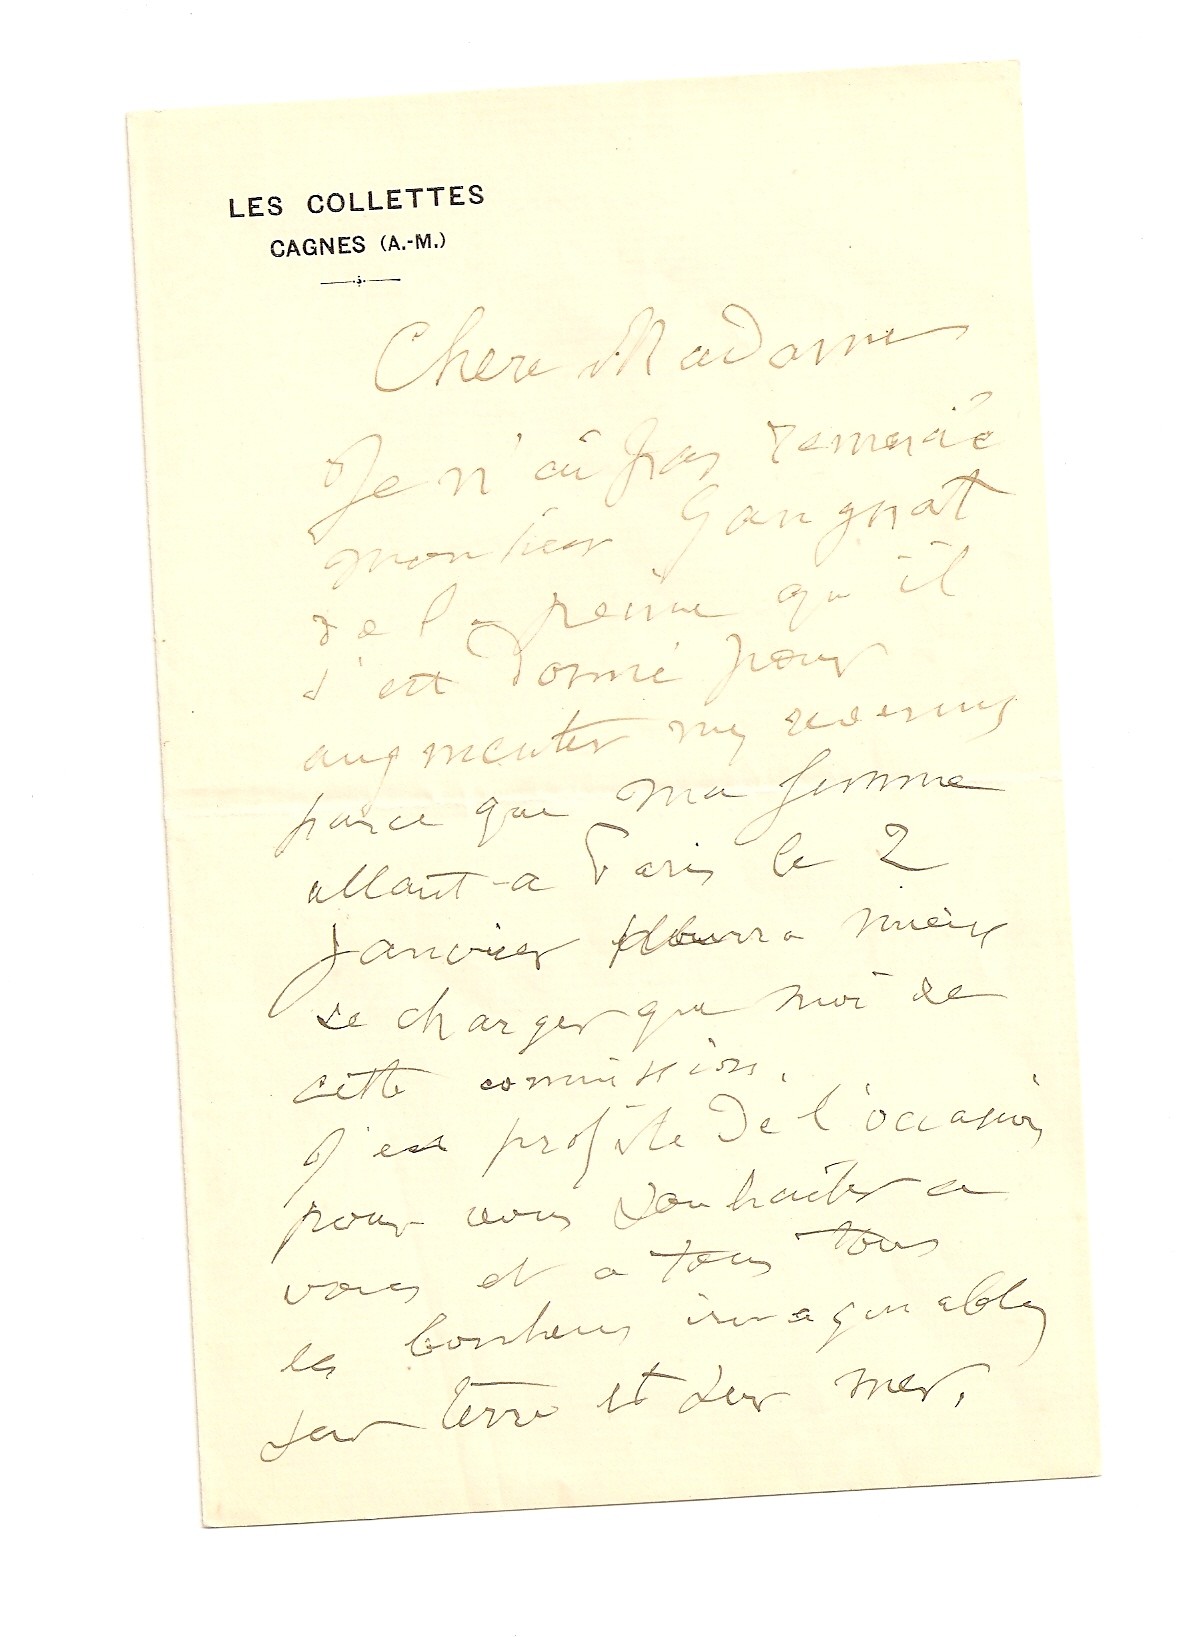 LES COLLETTES
CAGNES (A.-M.)
Chere Madame
Je n'ai pas remercié
monsieur Gangnat
de la peine qu'il
s'est donné pour
augmenter mes revenus
parce que ma femme
allant a Paris le 2
Janvier pourra mieux
se charger que moi de
cette commission.
J'en profite de l'occasion
pour vous souhaiter a
vous et a tous tous
les bonheurs imaginables
sur terre et sur mer.